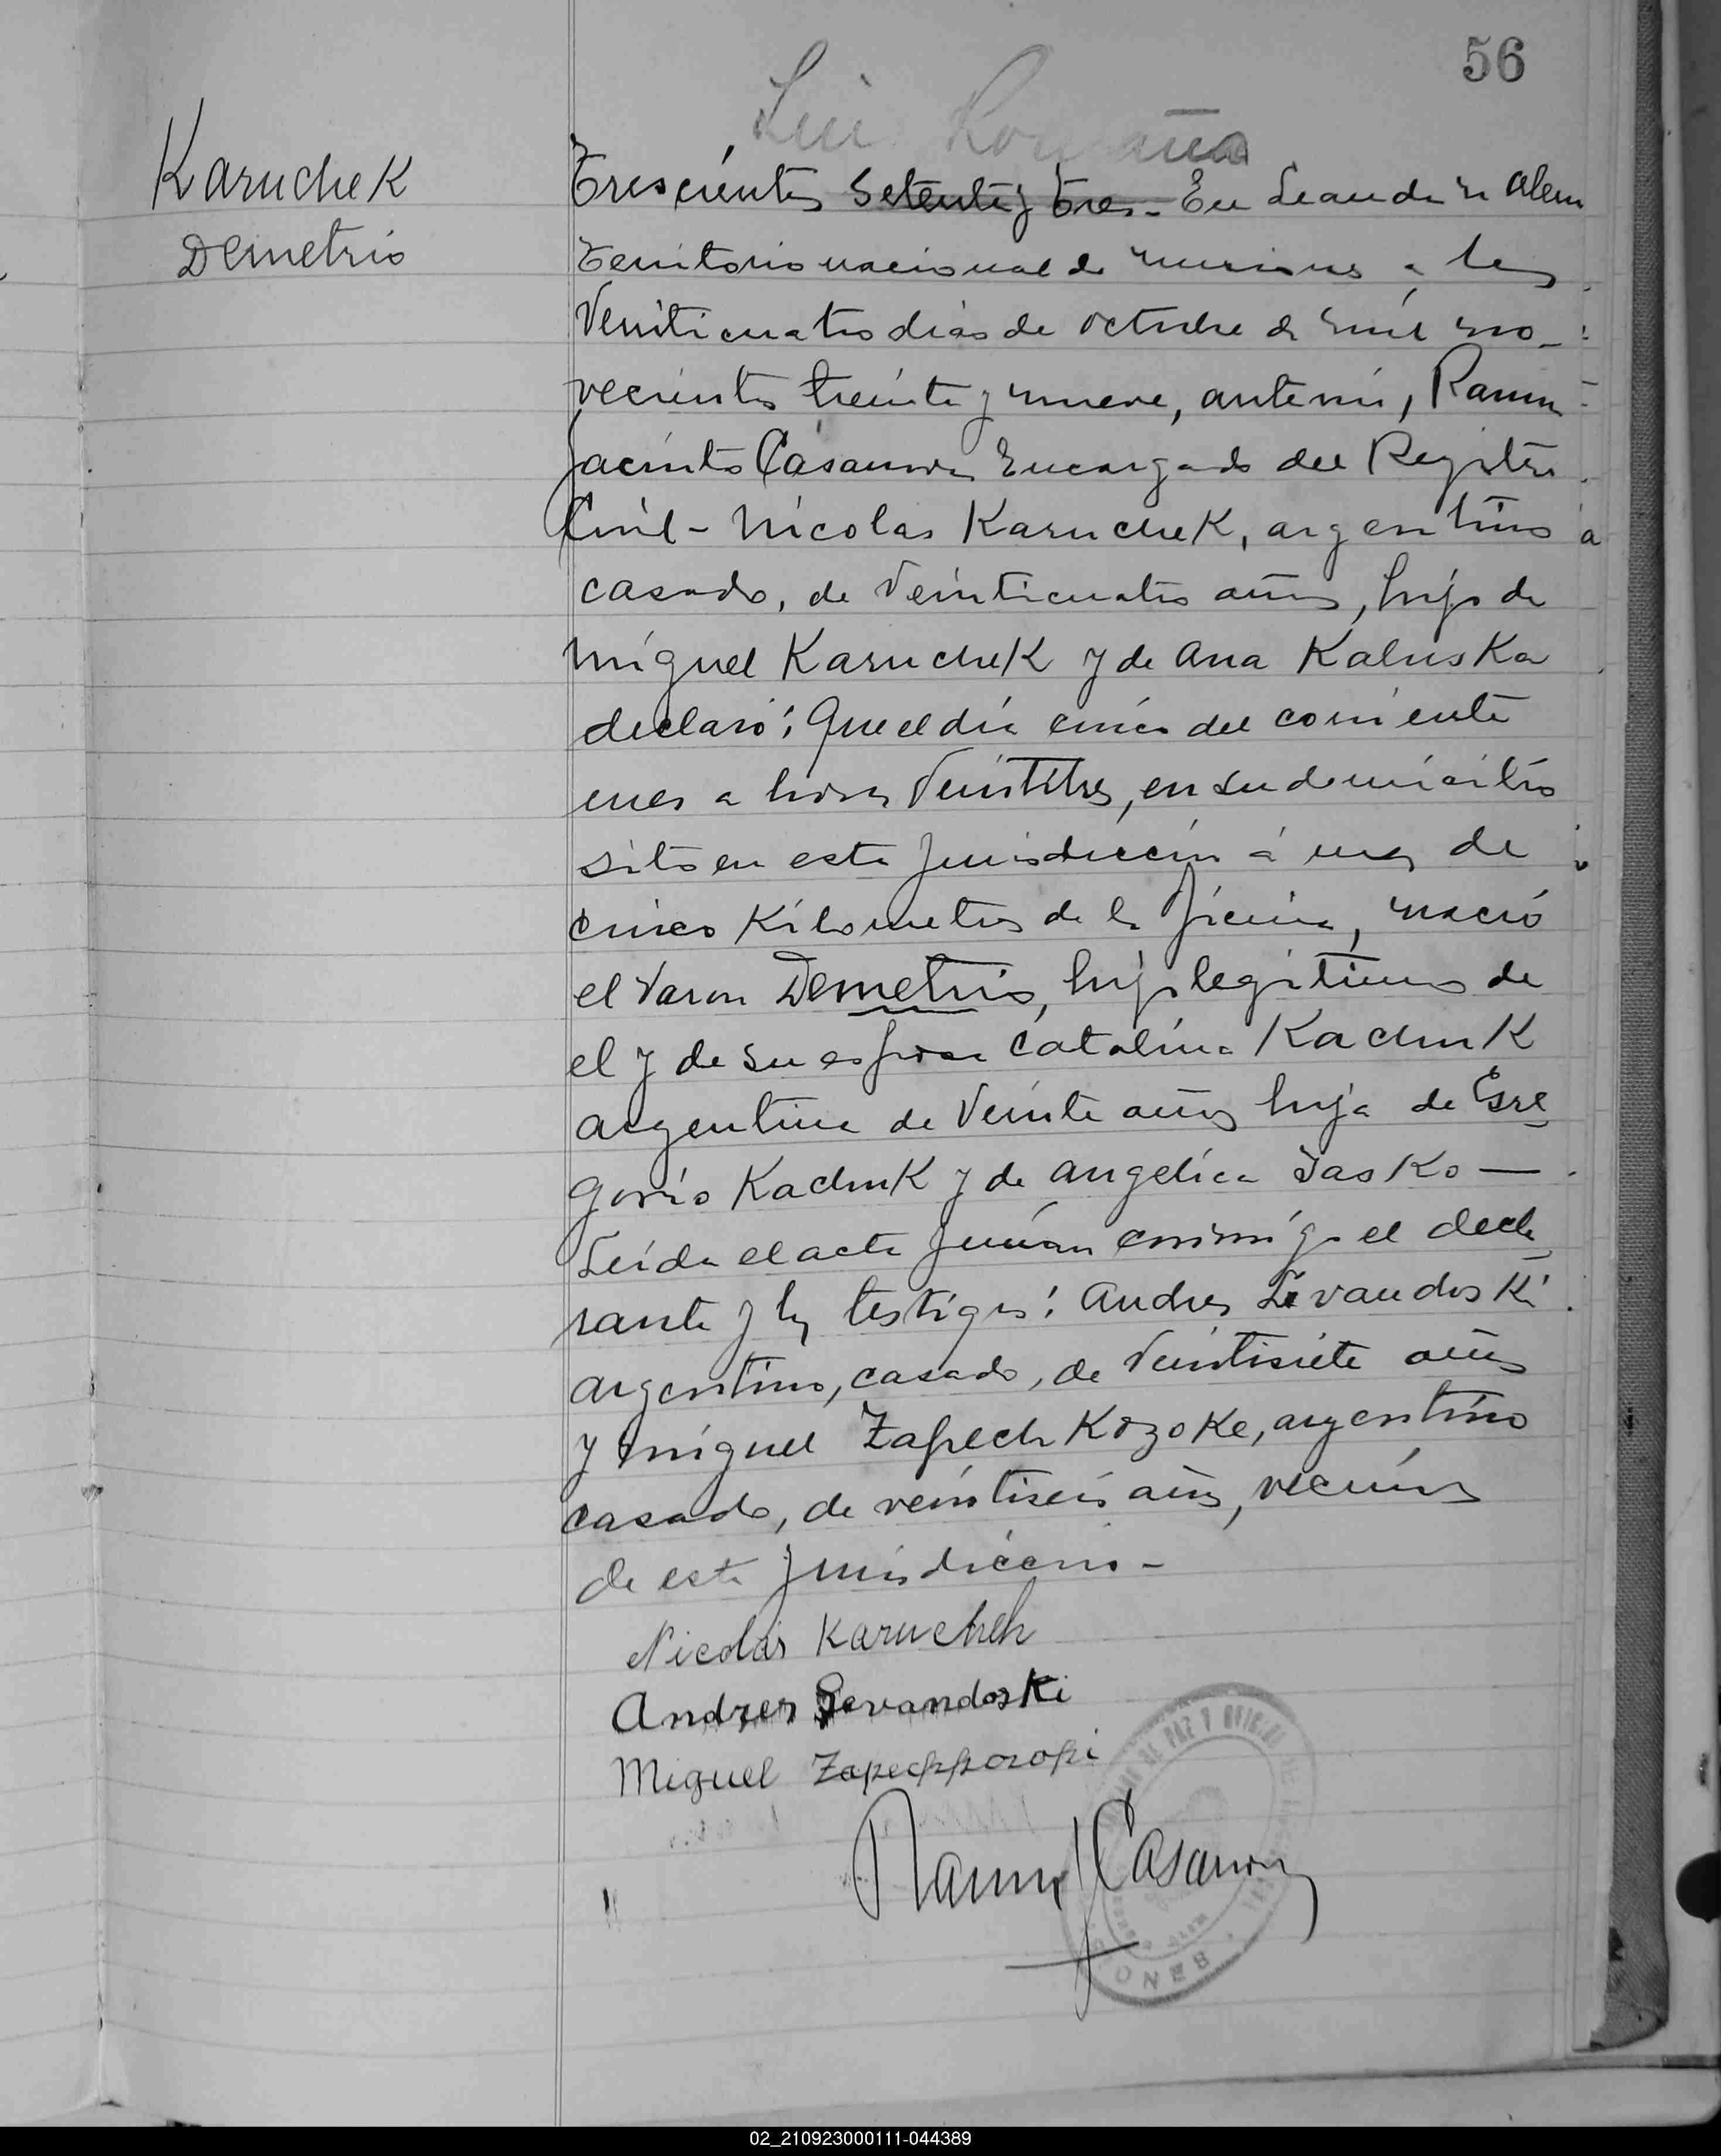 56
Karuchek
Demetrio
Trescientos setenta y tres.- En Leandro N Alem
Territorio nacional de Misiones a los
Veinticuatro dias de octubre de mil no-
vecientos treinta y nueve, ante mi, Ramon
Jacinto Casanova Encargado del Registro
Civil - Nicolas Karuchek, argentino
casado, de Veinticuatro años, hijo de
Miguel Karuchek y de Ana Kaluska
declaró: Que el dia cinco del corriente
mes a horas Veintitres, en su domicilio
sito en esta Jurisdiccion á mas de
cinco Kilometros de la oficina, nació
el Varon Demetrio, hijo legitimo de
el y de su esposa Catalina Kachuk
argentina de Veinte años hija de Gre
gorio Kachuk y de Angelica Jasko —
Leida el acta firman conmigo el decla
rante y los testigos: Andres Levandoski
argentino, casado, de Veintisiete años
y Miguel Zapech Kozoke, argentino
casado, de veintiseis años, vecinos
de esta Jurisdiccion -
Nicolás Karuchek
Andres Levandoski
Miguel
Ramon J Casanova
02_210923000111-044389